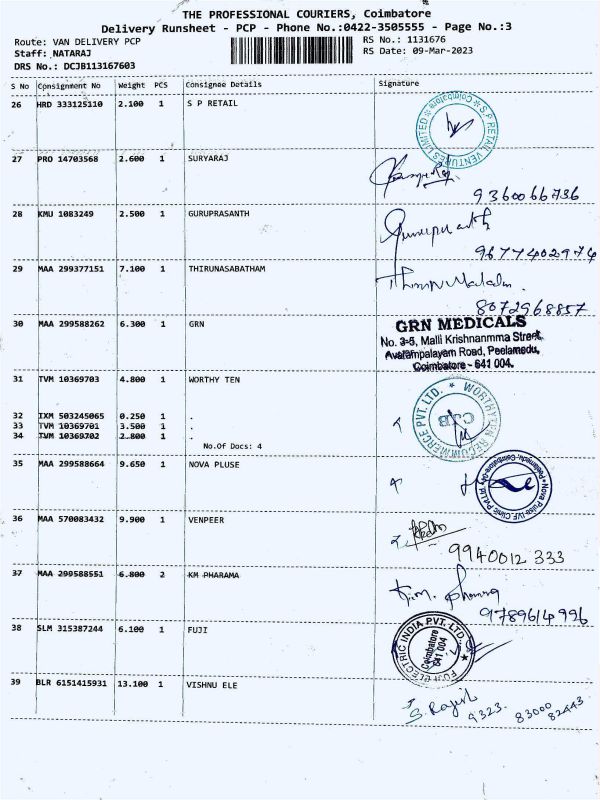 THE PROFESSIONAL COURIERS, Coimbatore
Delivery Runsheet - PCP - Phone No.:0422-3505555 - Page No.:3
Route: VAN DELIVERY PCP
RS No.: 1131676
Staff: NATARAJ
RS Date: 09-Mar-2023
DRS No.: DCJB113167603
S No Consignment No Weight PCS Consignee Details Signature
26 HRD 333125110 2.100 1 S P RETAIL
S.P RETAIL VENTURES LIMITED * Coimbatore *
27 PRO 14703568 2.600 1 SURYARAJ
9360066736
28 KMU 1083249 2.500 1 GURUPRASANTH
9677402974
29 MAA 299377151 7.100 1 THIRUNASABATHAM
8072968857
30 MAA 299588262 6.300 1 GRN
GRN MEDICALS
No. 3-5, Malli Krishnanmma Street,
Avarampalayam Road, Peelamedu,
Coimbatore - 641 004.
31 TVM 10369703 4.800 1 WORTHY TEN
32 IXM 503245065 0.250 1 .
33 TVM 10369701 3.500 1 .
34 TVM 10369702 2.800 1 .
No.Of Docs: 4
CJB
35 MAA 299588664 9.650 1 NOVA PLUSE
36 MAA 570083432 9.900 1 VENPEER
9940012 333
37 MAA 299588551 6.800 2 KM PHARAMA
K.m. pharma
9789614996
38 SLM 315387244 6.100 1 FUJI
FUJI ELECTRIC INDIA PVT. LTD.
Coimbatore
641 004
39 BLR 6151415931 13.100 1 VISHNU ELE
S. Rajesh
9323. 83000
82443